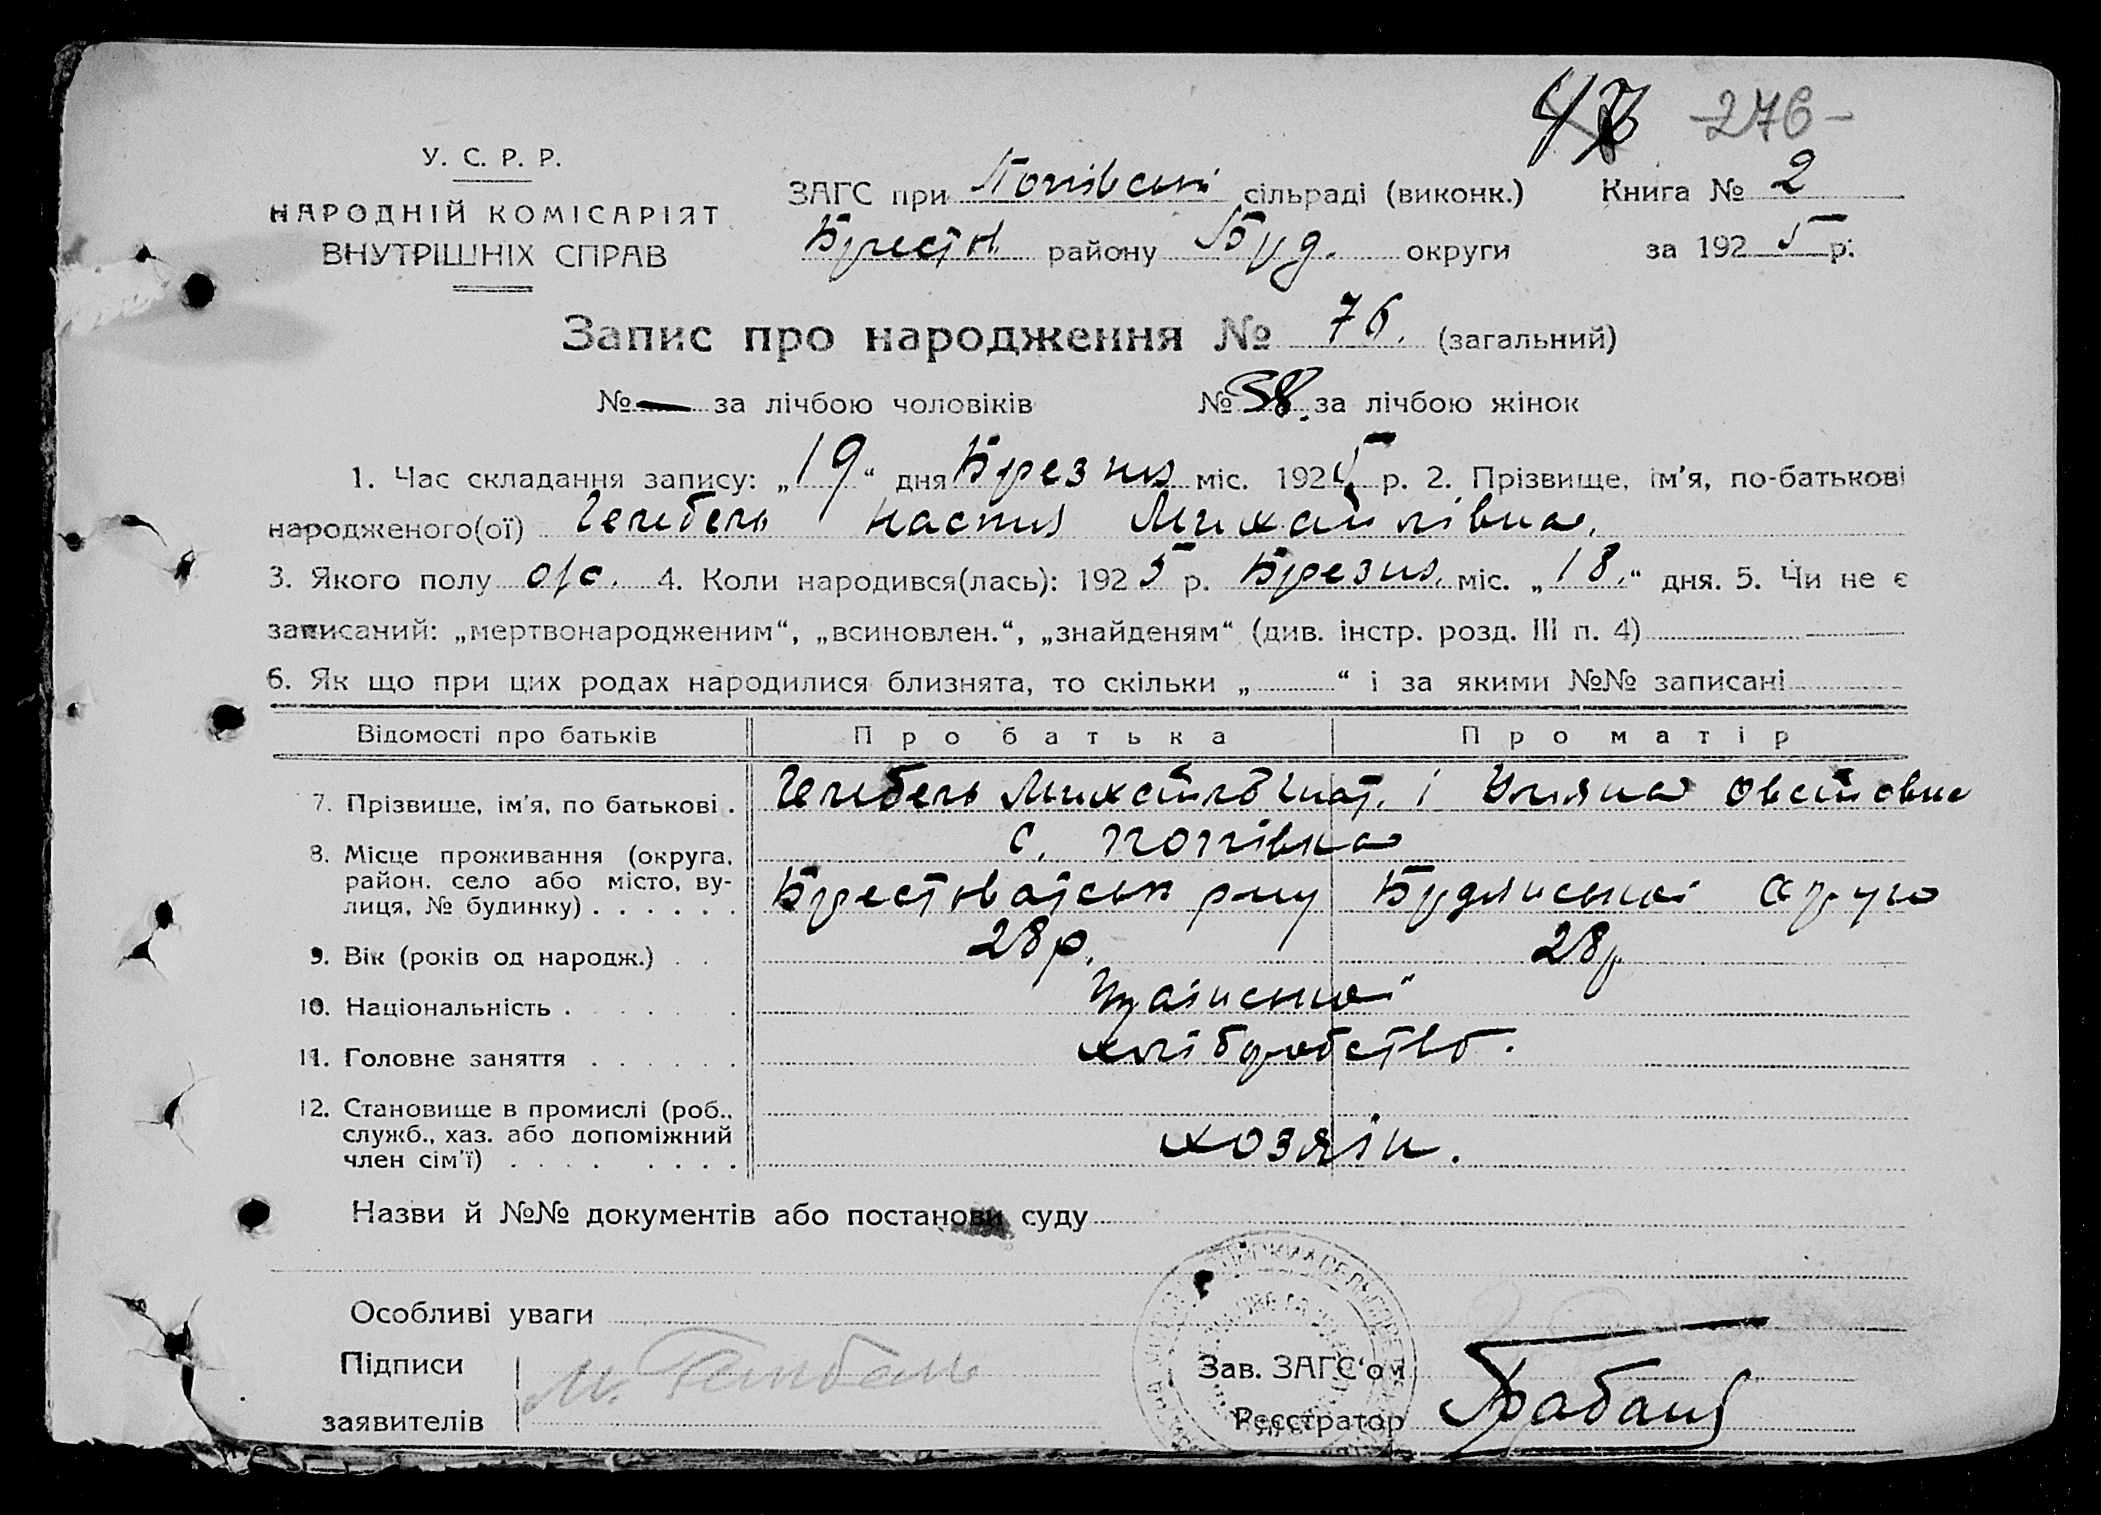 47 -276-
У. С. Р. Р.
НАРОДНІЙ КОМІСАРІЯТ
ВНУТРІШНІХ СПРАВ
ЗАГС при Попівські сільраді (виконк.) Книга № 2
Хрестів. району Куп. округи за 1925 р.
Запис про народження № 76. (загальний)
№ — за лічбою чоловіків № 38. за лічбою жінок
1. Час складання запису: „19“ дня Березня міс. 1925 р. 2. Прізвище, ім'я, по-батькові
народженого(ої) Гелибель Настя Михайлівна.
3. Якого полу 4. Коли народився(лась): 1925 р. Березня. міс. „18.“ дня. 5. Чи не є
записаний: „мертвонародженим“, „всиновлен.“, „знайденям“ (див. інстр. розд. III п. 4)
6. Як що при цих родах народилися близнята, то скільки „ “ і за якими №№ записані
Відомості про батьків Про батька Про матір
7. Прізвище, ім'я, по батькові . Гелибель Михайло і Уляна
8. Місце проживання (округа, с. Попівка
район, село або місто, ву-
лиця, № будинку) . . . . . .
9. Вік (років од народж.) . . 28 р. 28 р
10. Національність .
11. Головне заняття . . . . . . хліборобство.
12. Становище в промислі (роб.,
служб., хаз. або допоміжний
член сім'ї) . . . . . . . . хозяін.
Назви й №№ документів або постанови суду
Особливі уваги
Підписи М. Зав. ЗАГС'ом
заявителів Реєстратор